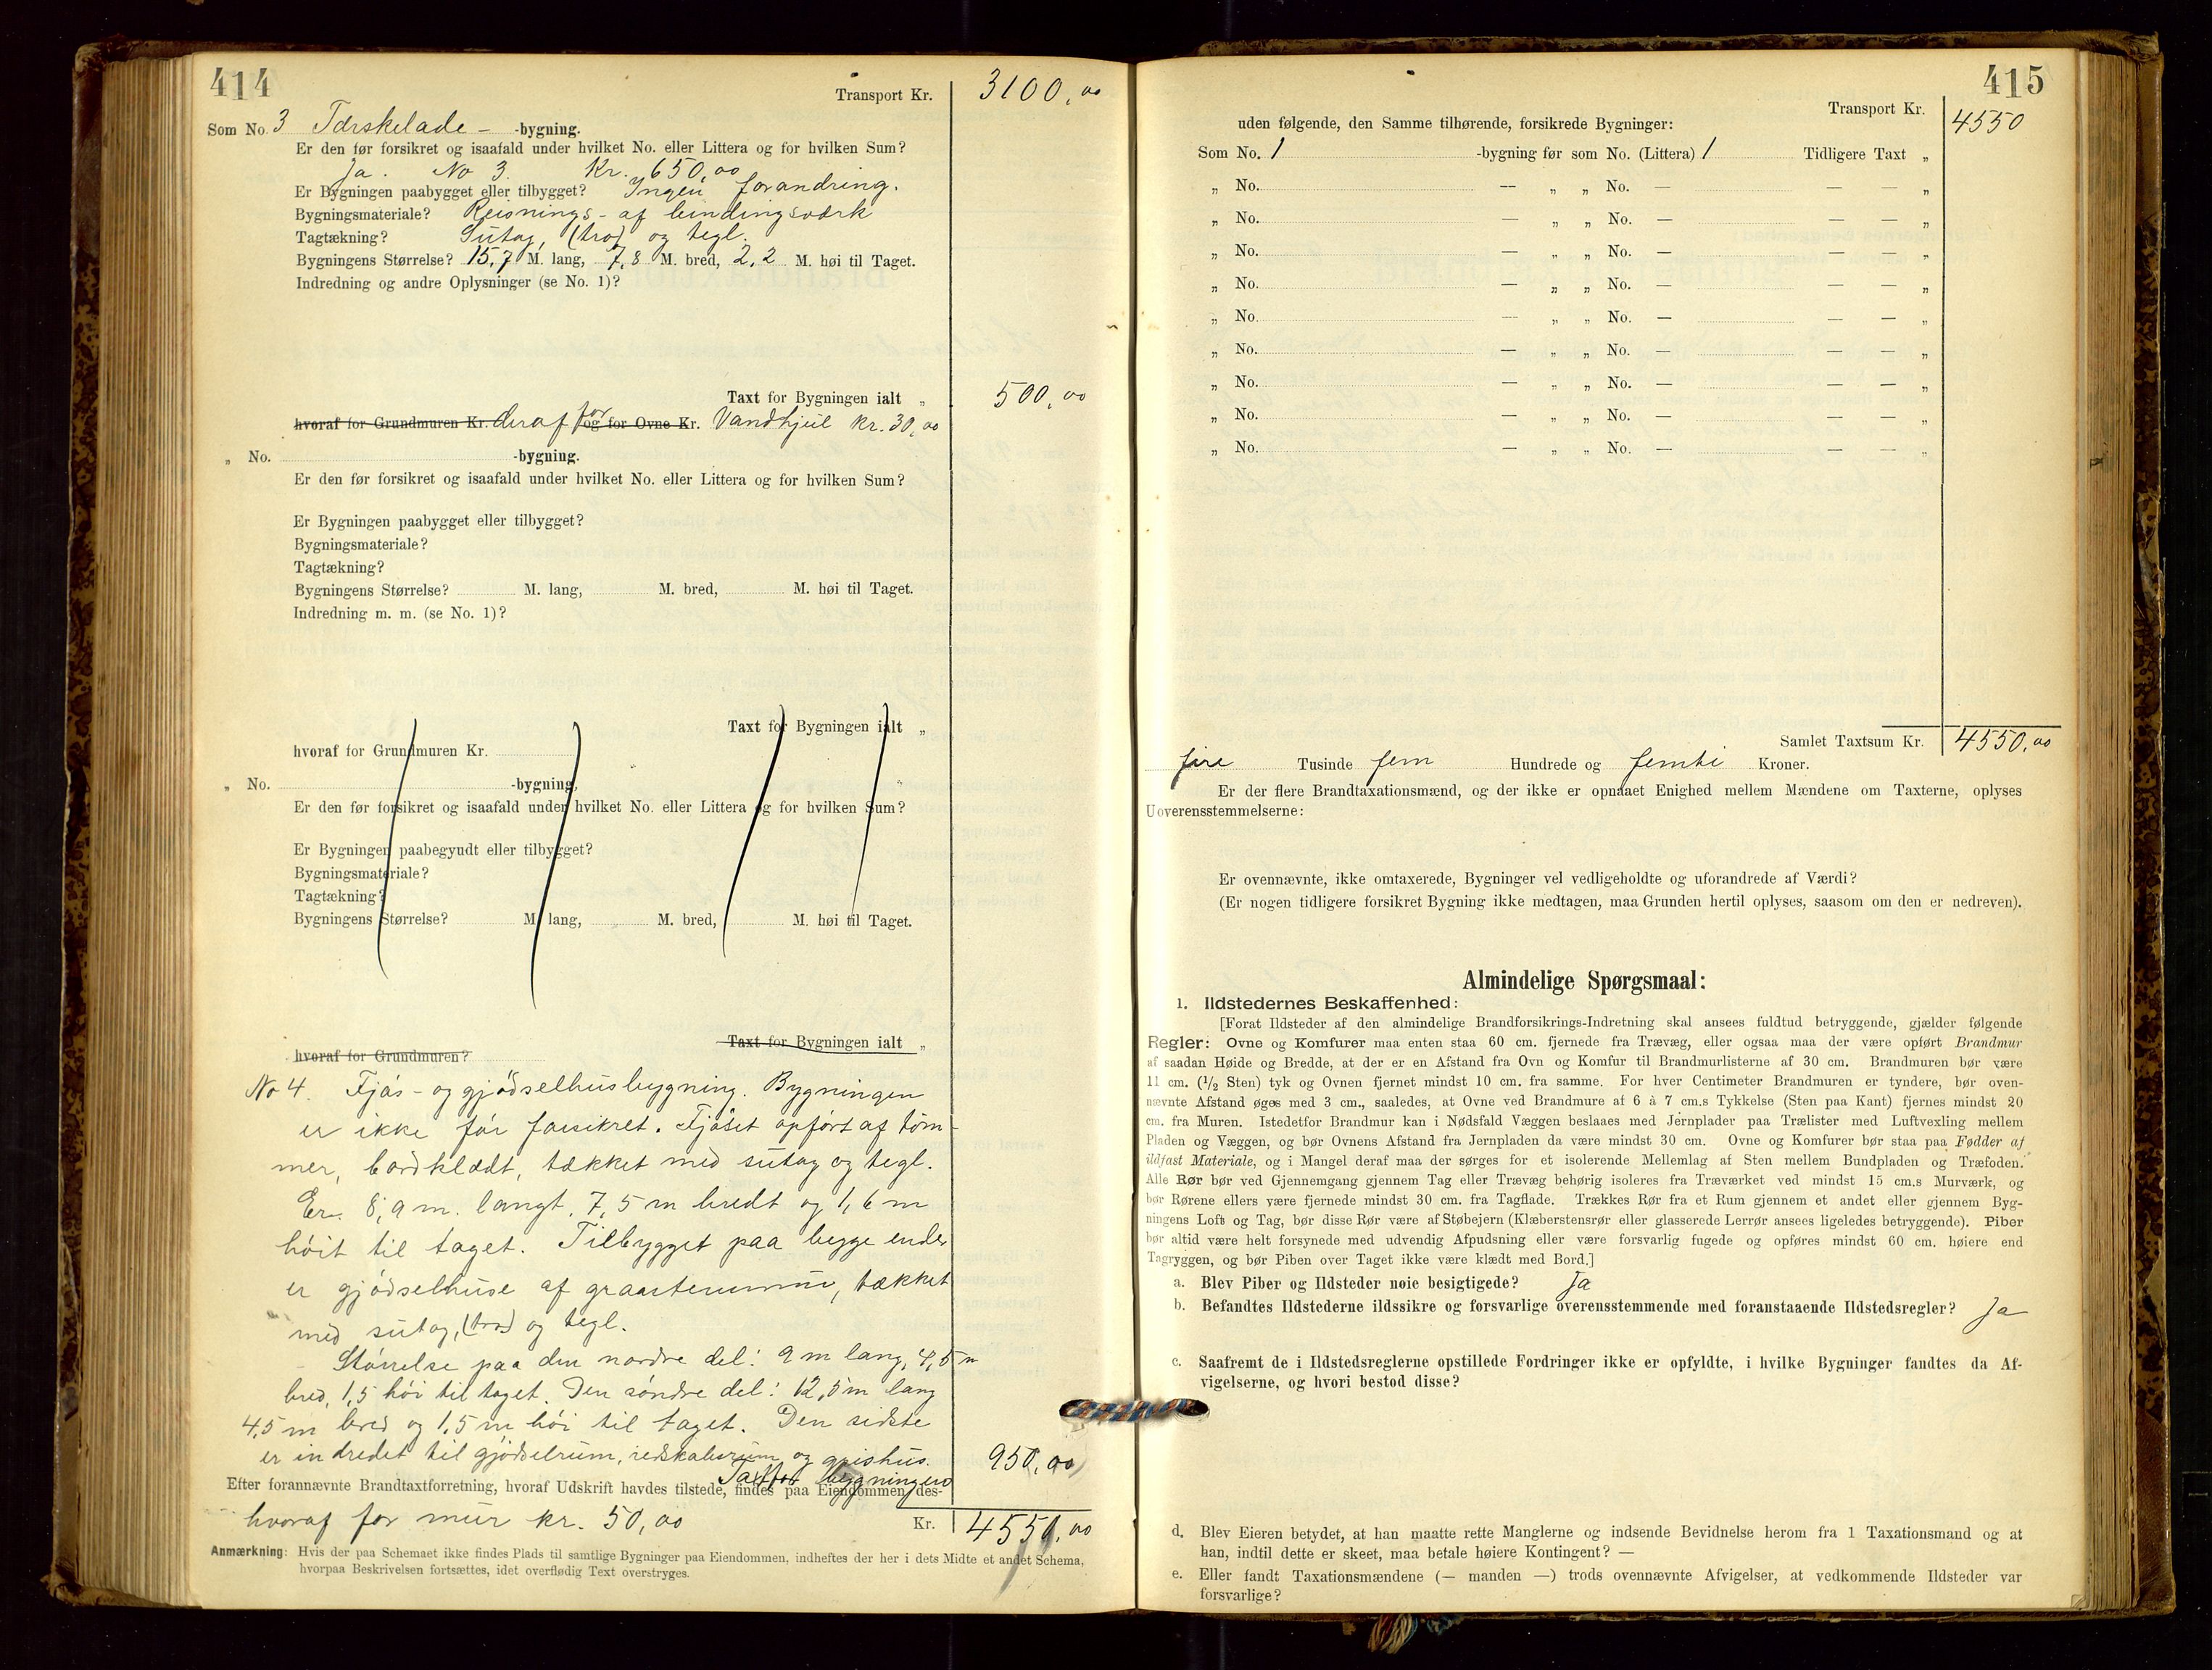 414
Transport Kr. 3100,00
Som No. 3 Tærskelade- -bygning.
Er den før forsikret og isaafald under hvilket No. eller Littera og for hvilken Sum?
Ja. No 3. Kr. 650,00
Er Bygningen paabygget eller tilbygget? Ingen forandring.
Bygningsmateriale? Reisnings- af bindingsværk
Tagtækning? Sutag, (tro) og tegl.
Bygningens Størrelse? 15,7 M. lang, 7,8 M. bred, 2,2 M. høi til Taget.
Indredning og andre Oplysninger (se No. 1)?
Taxt for Bygningen ialt „ 500,00
hvoraf for Grundmuren Kr. deraf for og for Ovne Kr. Vandhjul kr. 30,00
„ No. -bygning.
Er den før forsikret og isaafald under hvilket No. eller Littera og for hvilken Sum?
Er Bygningen paabygget eller tilbygget?
Bygningsmateriale?
Tagtækning?
Bygningens Størrelse? M. lang, M. bred, M. høi til Taget.
Indredning m. m. (se No. 1)?
Taxt for Bygningen ialt „
hvoraf for Grundmuren Kr.
„ No. -bygning, „
Er den før forsikret og isaafald under hvilket No. eller Littera og for hvilken Sum?
Er Bygningen paabegyudt eller tilbygget?
Bygningsmateriale?
Tagtækning?
Bygningens Størrelse? M. lang, M. bred, M. høi til Taget.
Taxt for Bygningen ialt „
hvoraf for Grundmuren?
No 4. Fjøs- og gjødselhusbygning. Bygningen
er ikke før forsikret. Fjøset opført af tøm-
mer, bordklædt, tækket med sutag og tegl.
Er 8,9 m. langt, 7,5 m bredt og 1,6 m
høit til taget. Tilbygget paa begge ender
er gjødselhuse af graastensmur, tækket
med sutag, (tro) og tegl.
Størrelse paa den nordre del: 9 m lang, 4,5 m
bred, 1,5 høi til taget. Den søndre del: 12,5 m lang
4,5 m bred og 1,5 m høi til taget. Den sidste
er indredet til gjødselrum, redskabsrum og grishus.
Taxt for bygningen 950,00
Efter forannævnte Brandtaxtforretning, hvoraf Udskrift havdes tilstede, findes paa Eiendommen des-
hvoraf for mur kr. 50,00 Kr. 4550,00
Anmærkning: Hvis der paa Schemaet ikke findes Plads til samtlige Bygninger paa Eiendommen, indheftes der her i dets Midte et andet Schema,
hvorpaa Beskrivelsen fortsættes, idet overflødig Text overstryges.
415
Transport Kr. 4550
uden følgende, den Samme tilhørende, forsikrede Bygninger:
Som No. 1 -bygning før som No. (Littera) 1 Tidligere Taxt „
„ No. — „ „ No. — — — „
„ No. — „ „ No. — — — „
„ No. — „ „ No. — — — „
„ No. — „ „ No. — — — „
„ No. — „ „ No. — — — „
„ No. — „ „ No. — — — „
„ No. — „ „ No. — — — „
„ No. — „ „ No. — — — „
„ No. — „ „ No. — — — „
Samlet Taxtsum Kr. 4550,00
fire Tusinde fem Hundrede og femti Kroner.
Er der flere Brandtaxationsmænd, og der ikke er opnaaet Enighed mellem Mændene om Taxterne, oplyses
Uoverensstemmelserne:
Er ovennævnte, ikke omtaxerede, Bygninger vel vedligeholdte og uforandrede af Værdi?
(Er nogen tidligere forsikret Bygning ikke medtagen, maa Grunden hertil oplyses, saasom om den er nedreven).
Almindelige Spørgsmaal:
1. Ildstedernes Beskaffenhed:
[Forat Ildsteder af den almindelige Brandforsikrings-Indretning skal ansees fuldtud betryggende, gjælder følgende
Regler: Ovne og Komfurer maa enten staa 60 cm. fjernede fra Trævæg, eller ogsaa maa der være opført Brandmur
af saadan Høide og Bredde, at der er en Afstand fra Ovn og Komfur til Brandmurlisterne af 30 cm. Brandmuren bør være
11 cm. (1/2 Sten) tyk og Ovnen fjernet mindst 10 cm. fra samme. For hver Centimeter Brandmuren er tyndere, bør oven-
nævnte Afstand øges med 3 cm., saaledes, at Ovne ved Brandmure af 6 à 7 cm.s Tykkelse (Sten paa Kant) fjernes mindst 20
cm. fra Muren. Istedetfor Brandmur kan i Nødsfald Væggen beslaaes med Jernplader paa Trælister med Luftvexling mellem
Pladen og Væggen, og bør Ovnens Afstand fra Jernpladen da være mindst 30 cm. Ovne og Komfurer bør staa paa Fødder af
ildfast Materiale, og i Mangel deraf maa der sørges for et isolerende Mellemlag af Sten mellem Bundpladen og Træfoden.
Alle Rør bør ved Gjennemgang gjennem Tag eller Trævæg behørig isoleres fra Træværket ved mindst 15 cm.s Murværk, og
bør Rørene ellers være fjernede mindst 30 cm. fra Tagflade. Trækkes Rør fra et Rum gjennem et andet eller gjennem Byg-
ningens Loft og Tag, bør disse Rør være af Støbejern (Klæberstensrør eller glasserede Lerrør ansees ligeledes betryggende). Piber
bør altid være helt forsynede med udvendig Afpudsning eller være forsvarlig fugede og opføres mindst 60 cm. høiere end
Tagryggen, og bør Piben over Taget ikke være klædt med Bord.]
a. Blev Piber og Ildsteder nøie besigtigede? Ja
b. Befandtes Ildstederne ildssikre og forsvarlige overensstemmende med foranstaaende Ildstedsregler? Ja
c. Saafremt de i Ildstedsreglerne opstillede Fordringer ikke er opfyldte, i hvilke Bygninger fandtes da Af-
vigelserne, og hvori bestod disse?
d. Blev Eieren betydet, at han maatte rette Manglerne og indsende Bevidnelse herom fra 1 Taxationsmand og at
han, indtil dette er skeet, maa betale høiere Kontingent? —
e. Eller fandt Taxationsmændene (— manden —) trods ovennævnte Afvigelser, at vedkommende Ildsteder var
forsvarlige?